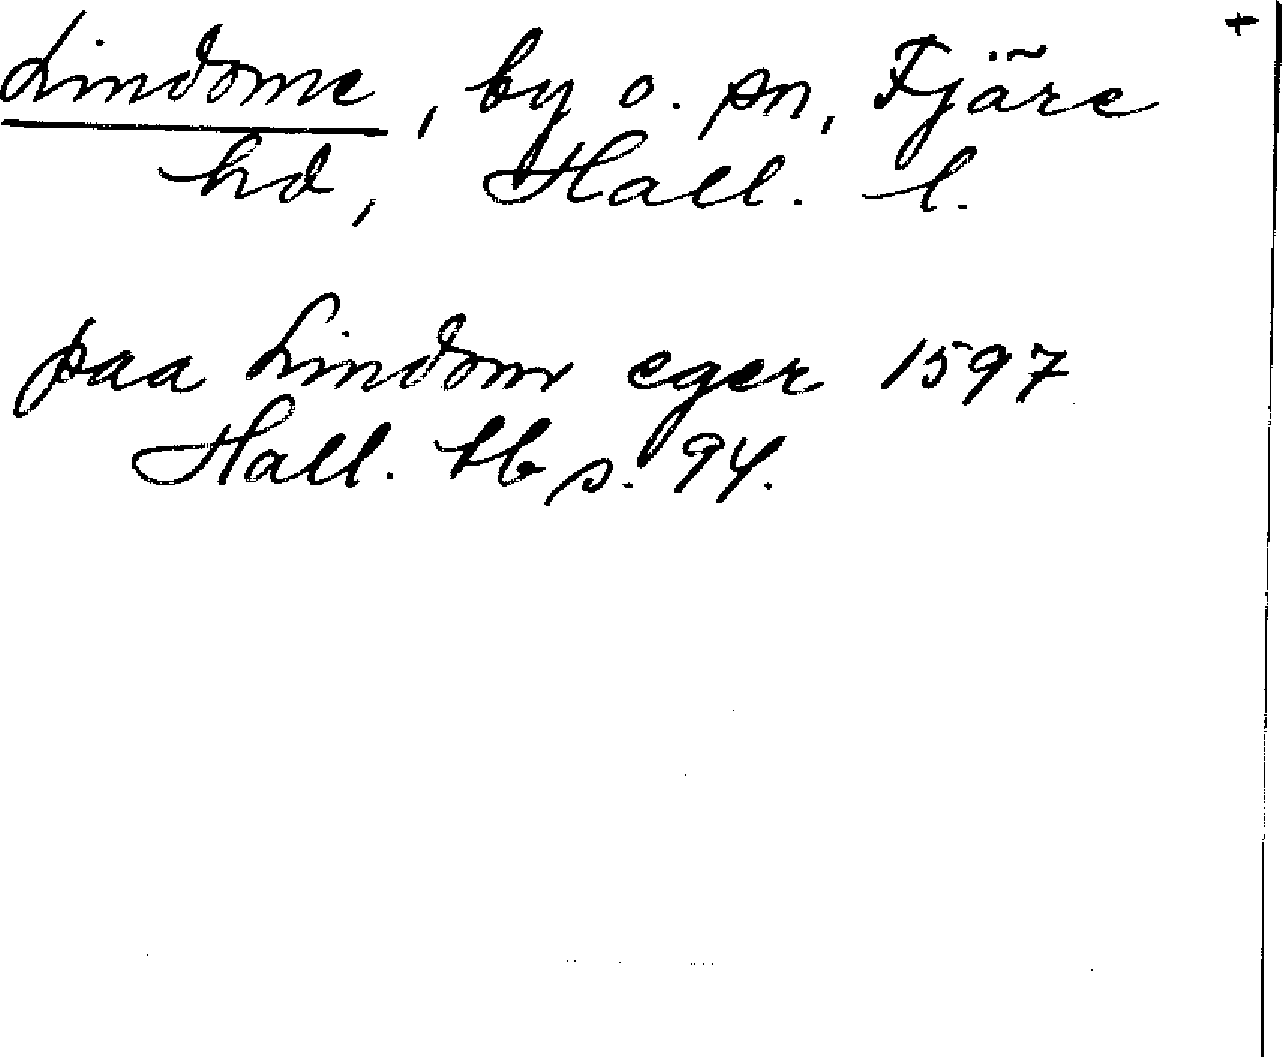 +
Lindome, by o. sn, Fjäre
hd, Hall. l.
paa Lindom eger 1597
Hall. tb s. 94.